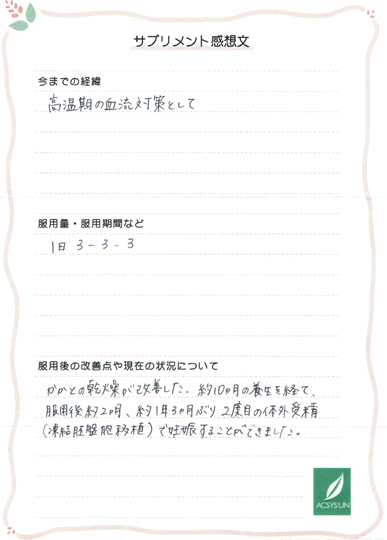 サプリメント感想文
今までの経緯
高温期の血流対策として
服用量・服用期間など
1日 3-3-3
服用後の改善点や現在の状況について
かかとの乾燥が改善した。約10ヵ月の養生を経て、
服用後約2ヵ月、約1年3ヵ月ぶり2度目の体外受精
(凍結胚盤胞移植)で妊娠することができました。
ACSYS UN